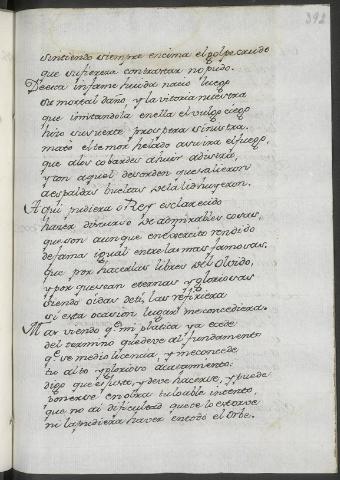 392
sintiendo siempre encima el golpe crudo
que sufierera contrastar no pudo.
De esta infame huida nacio luego
su mortal daño, y la vitoria nuestra
que imitandola en ella el vulgo ciego
hizo su suerte prospera sinestra.
mato el temor helado a su ira el fuego,
que a los cobardes a huir adiestra,
y con aquel desorden que salieron
a espaldas bueltas de la lid huyeron.
Aqui pudiera o Rey esclarecido
hacer discurso de admirables cosas,
que son aunque en exercito rendido
de fama igual entre las mas famosas.
que por hacerlas libres del olvido,
y por que sean eternas y gloriosas
siendo oidas de ti, las refiriera
si esta ocasion lugar me concediera.
Mas viendo q.e mi platica ya ecede
del termino que deve al fundamento
q.e ve medio licencia, y me concede
tu alto y glorioso acatamiento:
digo que es justo, y deve hacerse, y puede
ponerse en obra tu loable intento,
que no ai dificultad que te lo estorve
ni la pudiera haver en todo el Orbe.